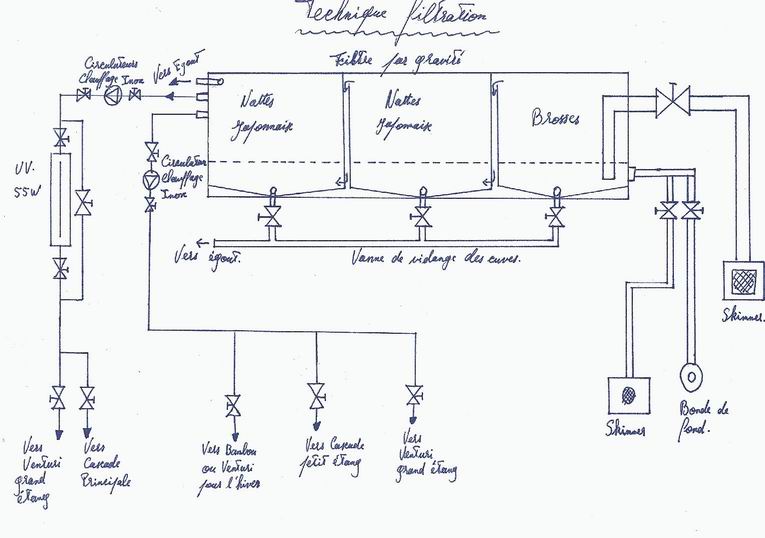 Technique filtration
Filtre par gravité
Circulateurs
Chauffage Inox
Vers Egout
Nattes
Japonnaise
Nattes
Japonnaise
Brosses
UV.
55W
Circulateur
Chauffage
Inox
Vers égout.
Vanne de vidange des cuves.
Skimmer.
Skimmer
Bonde de
fond.
Vers
Venturi
grand
étang
Vers
Cascade
Principale
Vers Bambou
ou Venturi
pour l'hiver
Vers Cascade
petit étang
Vers
Venturi
grand étang